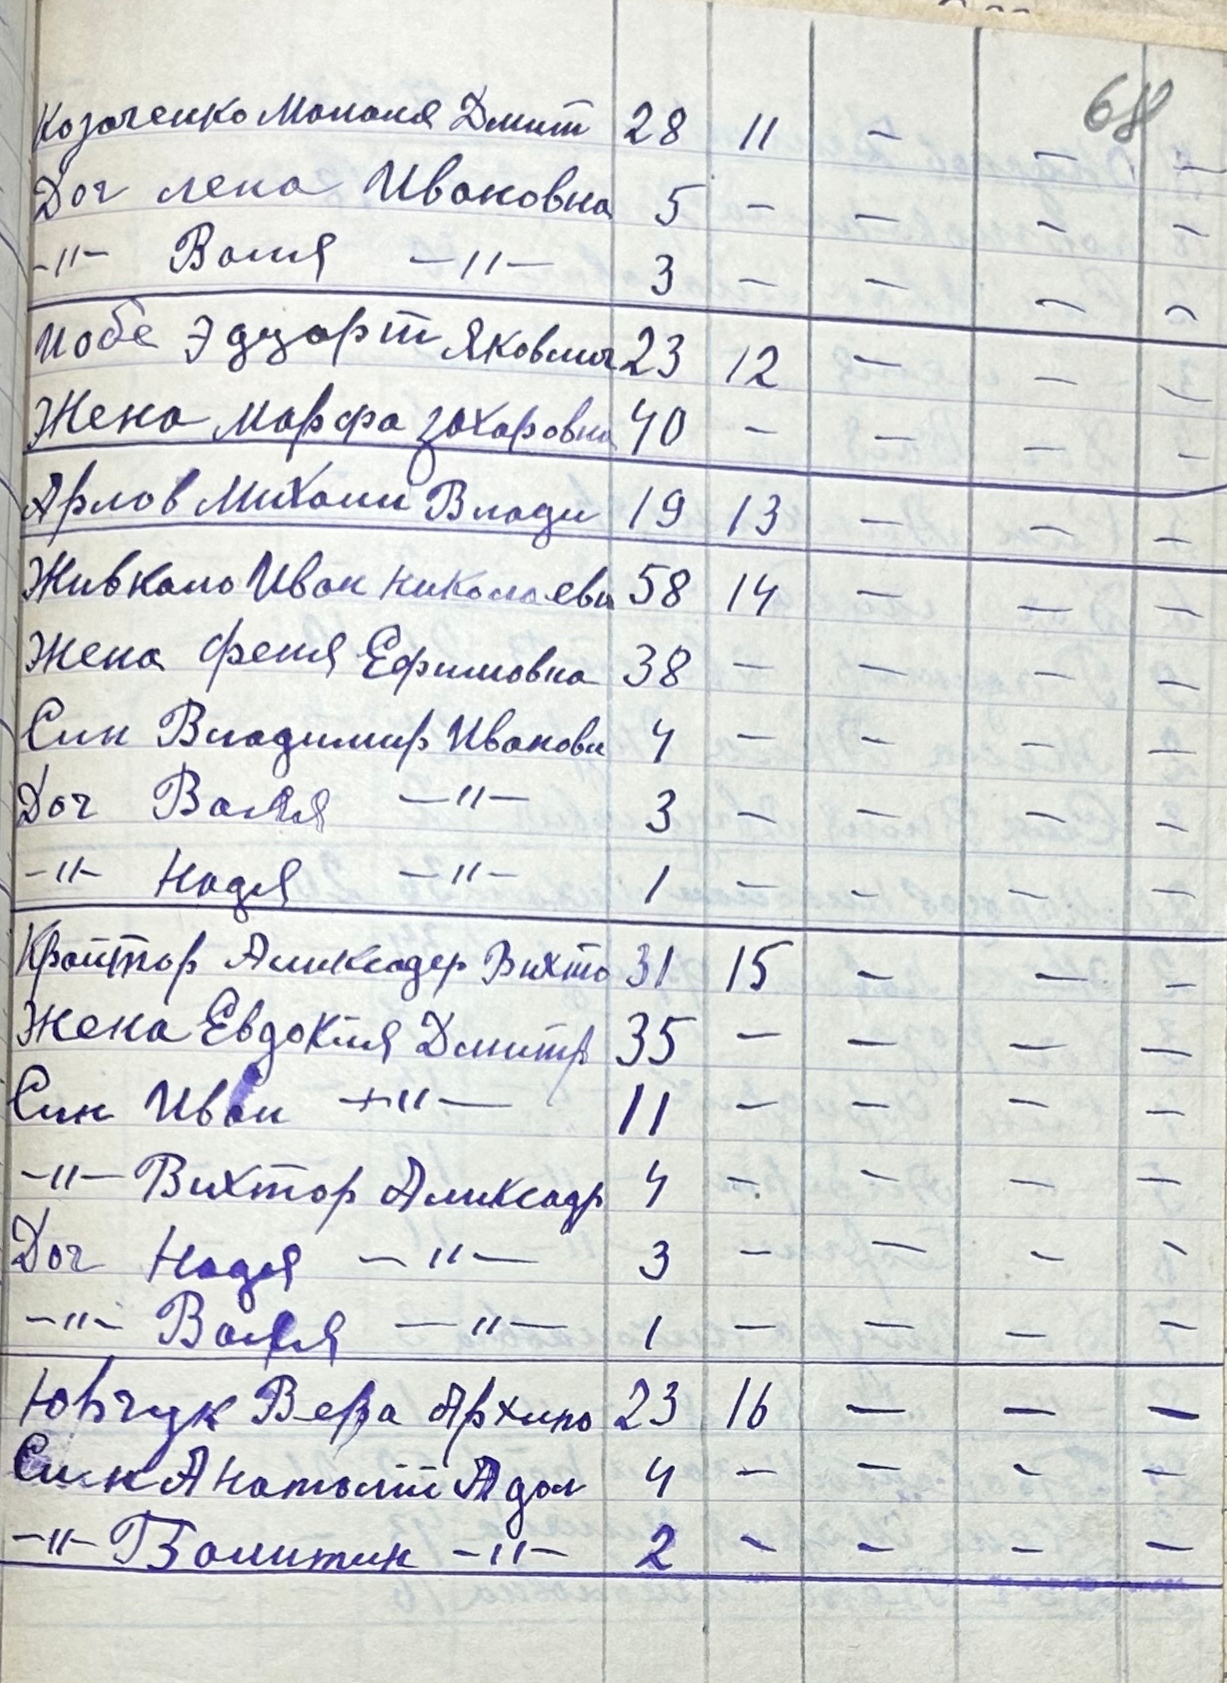 68
Козаченко Мананя Дмит 28 11 – – –
Доч лена Ивановна 5 – – – –
–〃– Валя –〃– 3 – – – –
Иобе Эдуарт Яковлич 23 12 – – –
Жена марфа захаровна 40 – – – –
Арлов Михаил Влади 19 13 – – –
Живкало Иван николаеви 58 14 – – –
Жена феня Ефимовна 38 – – – –
Син Владимир Иванови 4 – – – –
Доч Валя –〃– 3 – – – –
–〃– Надя –〃– 1 – – – –
Крайтор Аликсадер Вихто 31 15 – – –
Жена Евдокия Дмитр 35 – – – –
Син Иван –〃– 11 – – – –
–〃– Вихтор Аликсадр 4 – – – –
Доч Надя –〃– 3 – – – –
–〃– Валя –〃– 1 – – – –
Ювчук Вера Архипо 23 16 – – –
Син Анатолій Адол 4 – – – –
–〃– Валитин –〃– 2 – – – –